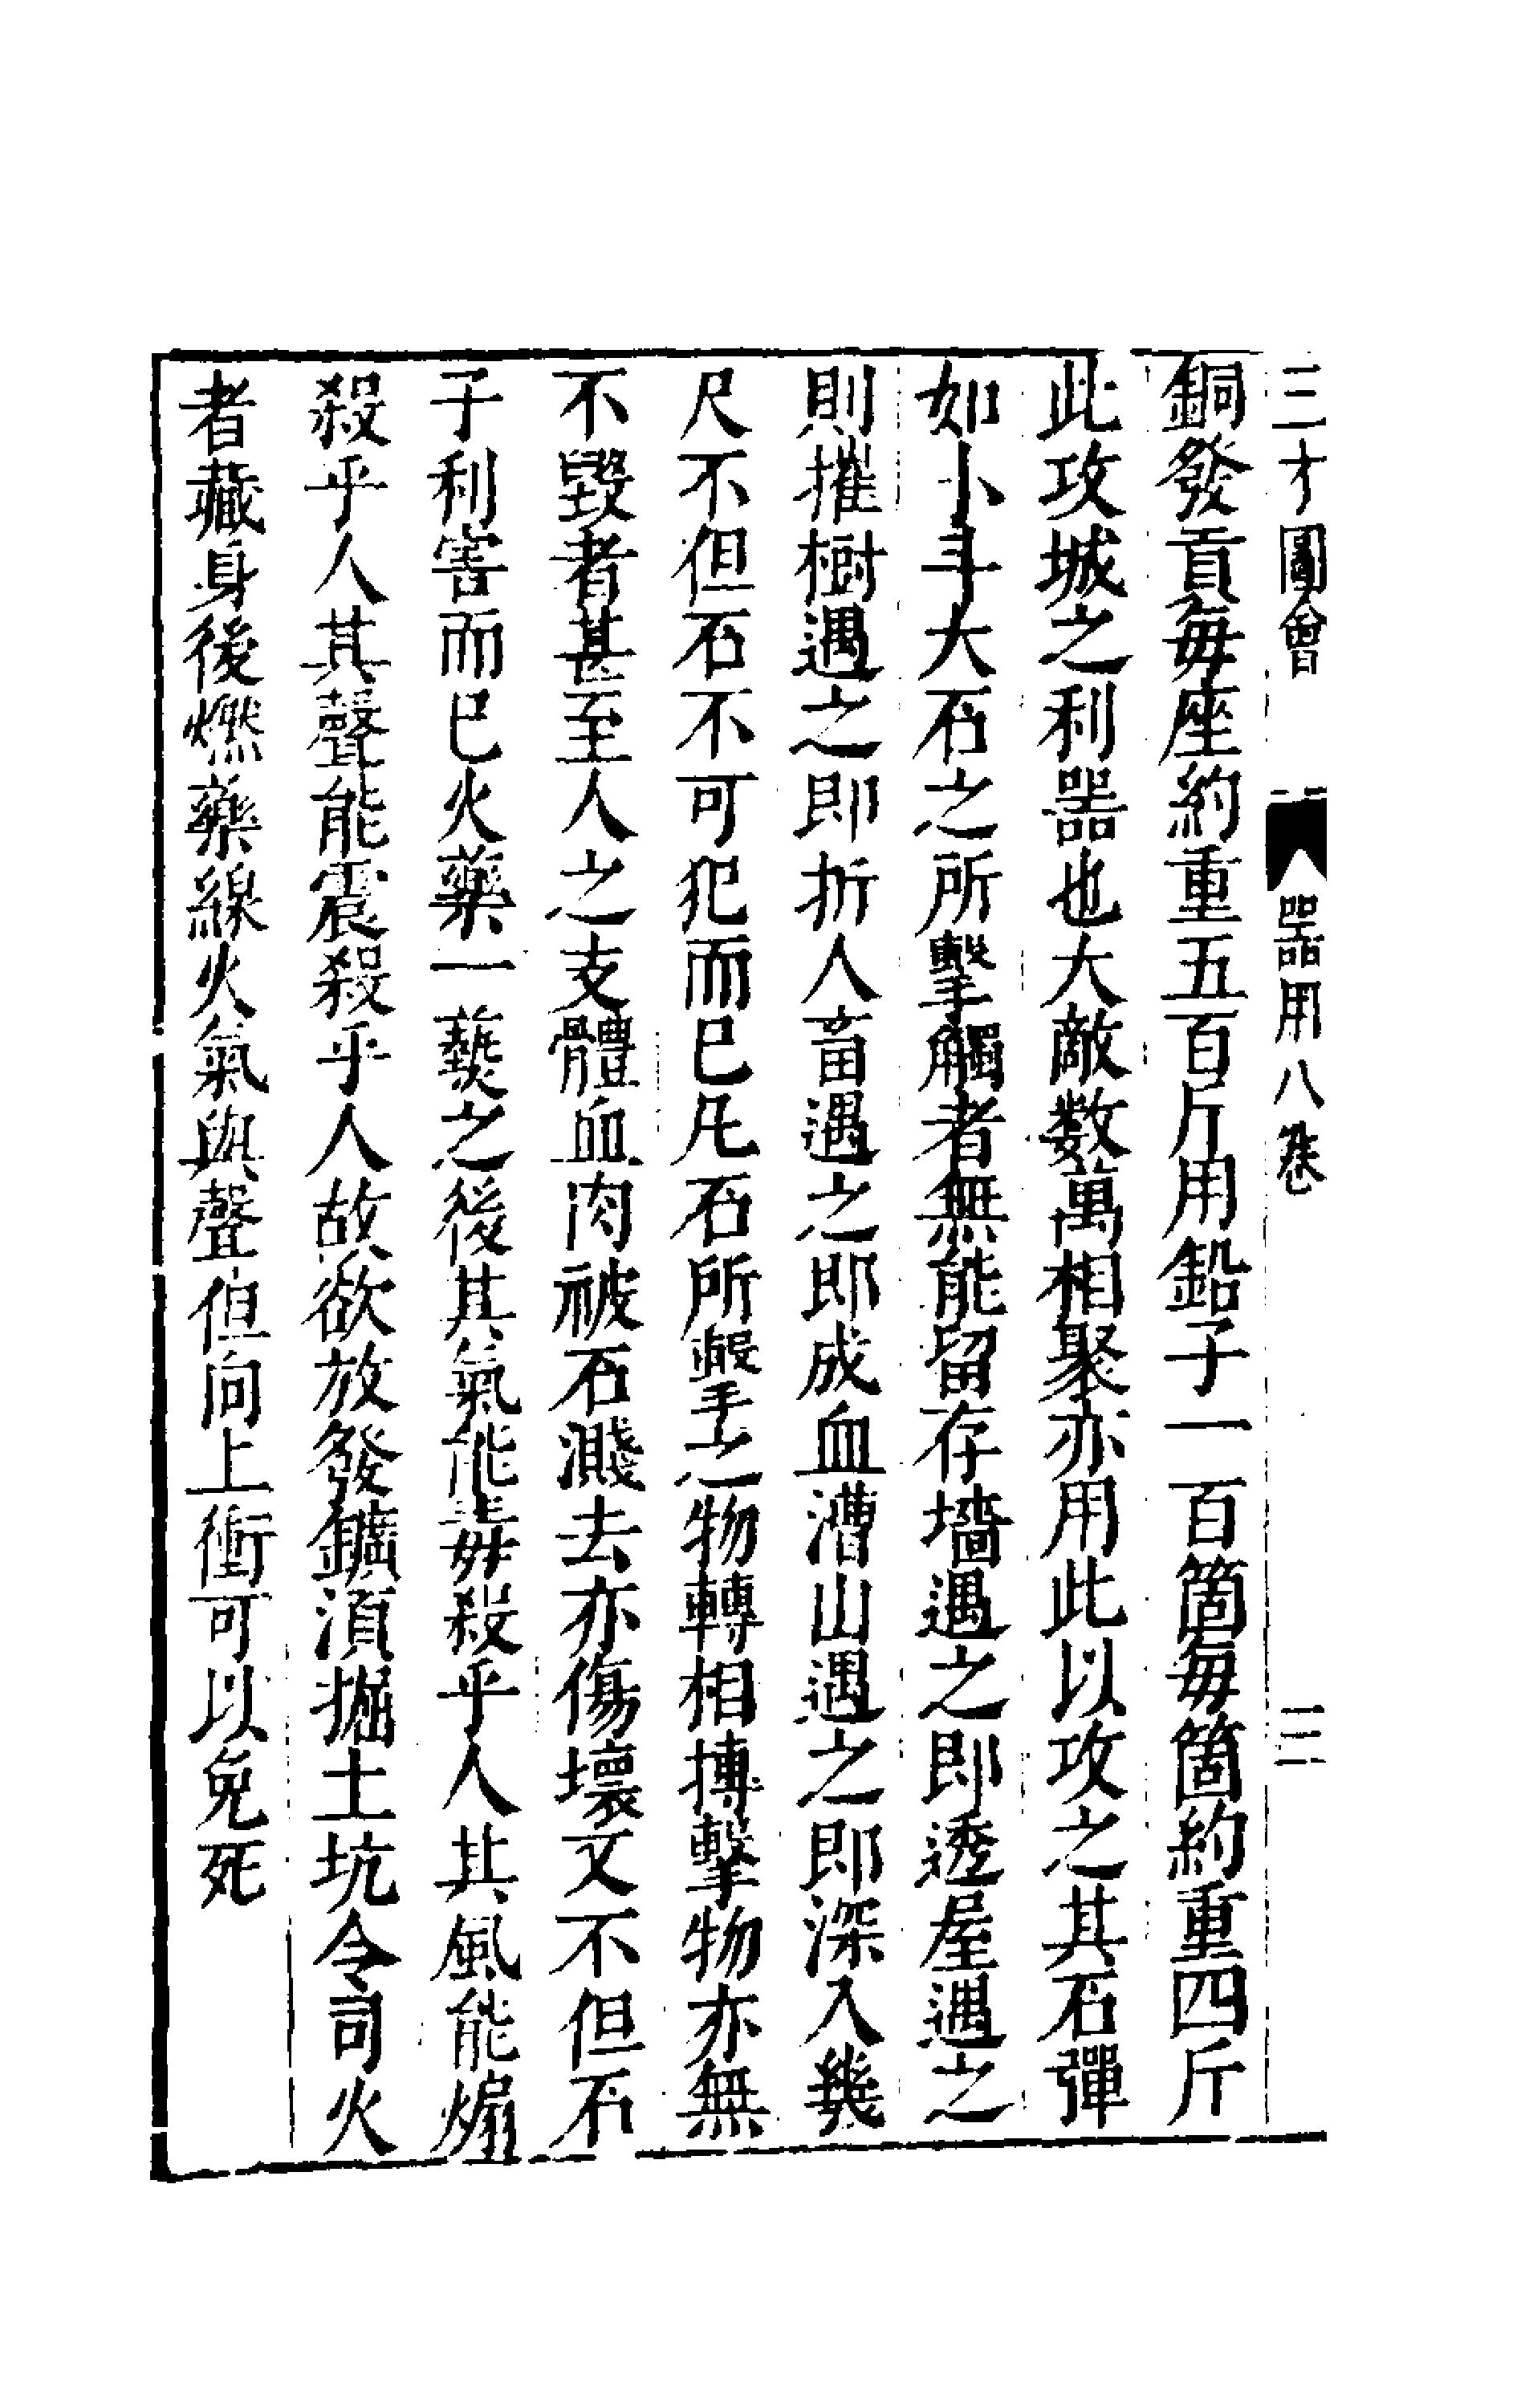 三才圖會 器用八卷 三
銅發貢每座約重五百斤用鉛子一百箇每箇約重四斤
此攻城之利噐也大敵数萬相聚亦用此以攻之其石彈
如小斗大石之所擊觸者無能留存墻遇之即透屋遇之
則摧樹遇之即折人畜遇之即成血漕山遇之即深入幾
尺不但石不可犯而已凡石所擊之物轉相摶擊物亦無
不毀者甚至人之支體血肉被石濺去亦傷壞又不但石
子利害而已火藥一爇之後其氣能毒殺乎人其風能煽
殺乎人其聲能震殺乎人故欲放發鑛須掘土坑令司火
者藏身後燃藥線火氣與聲但向上衝可以免死